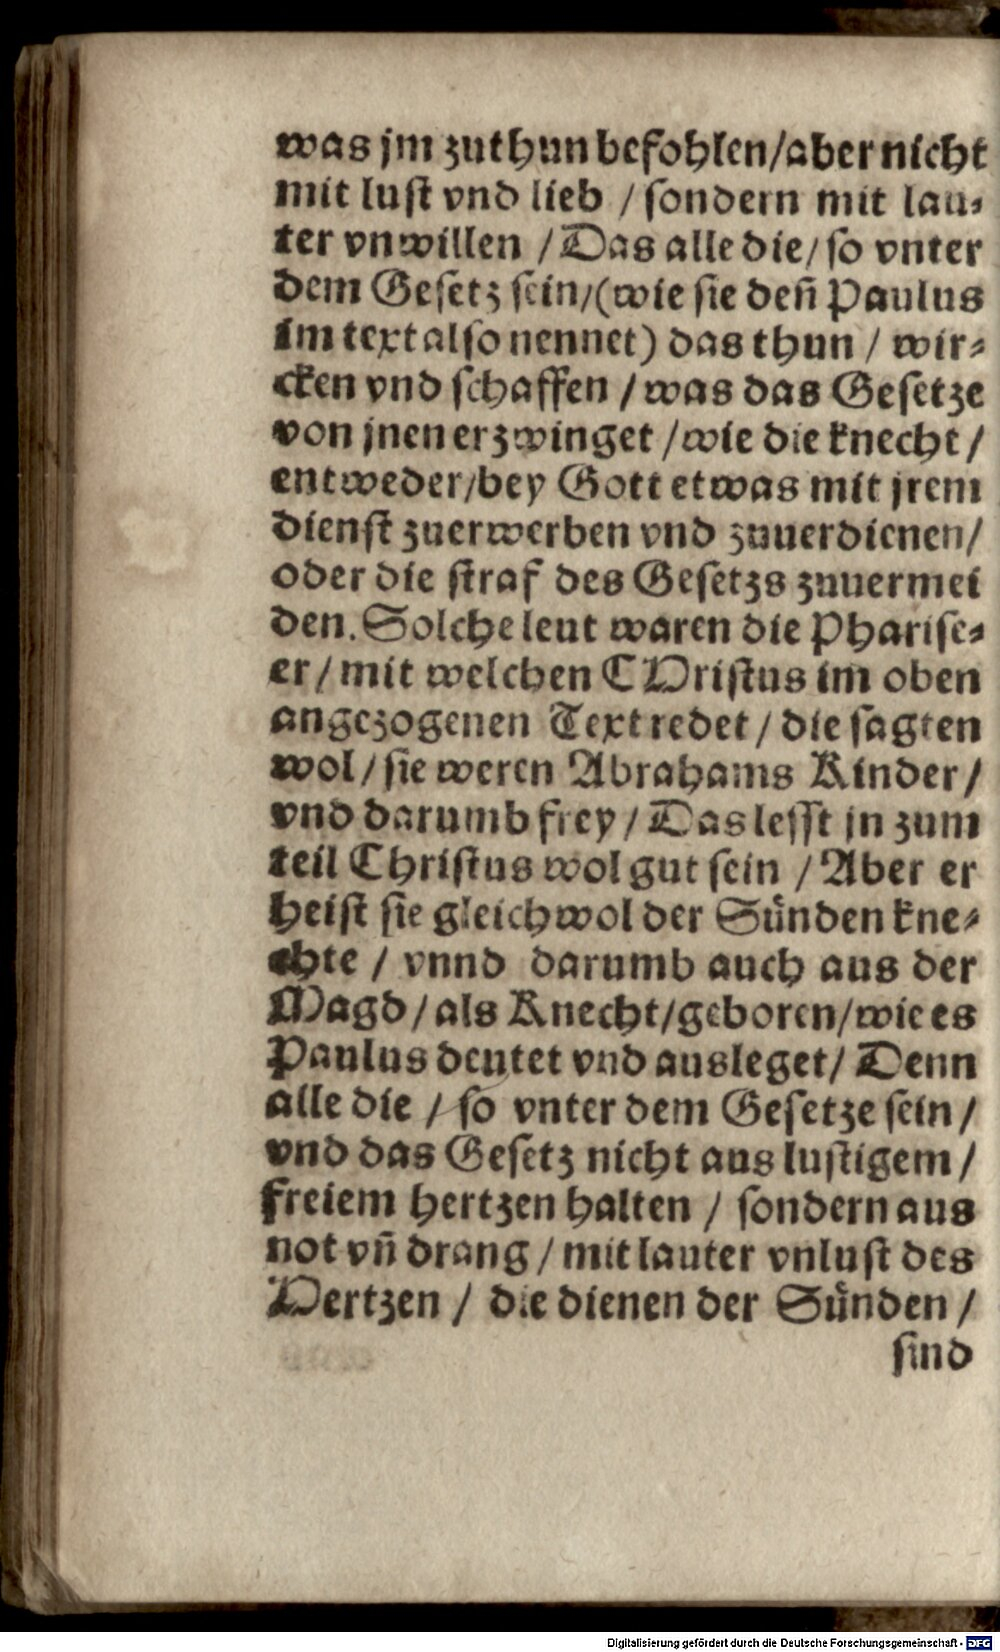 was jm zuthun befohlen/aber nicht
mit lust vnd lieb / sondern mit lau⸗
ter vnwillen / Das alle die/ so vnter
dem Gesetz sein/(wie sie deñ Paulus
im text also nennet) das thun / wir⸗
cken vnd schaffen / was das Gesetze
von jnen erzwinget / wie die knecht /
entweder/bey Gott etwas mit jrem
dienst zuerwerben vnd zuuerdienen/
oder die straf des Gesetzs zuuermei
den. Solche leut waren die Pharise⸗
er / mit welchen CHristus im oben
angezogenen Text redet / die sagten
wol / sie weren Abrahams Kinder /
vnd darumb frey / Das lesst jn zum
teil Christus wol gut sein / Aber er
heist sie gleichwol der Sünden kne⸗
chte / vnnd darumb auch aus der
Magd / als Knecht/geboren/wie es
Paulus deutet vnd ausleget/ Denn
alle die / so vnter dem Gesetze sein /
vnd das Gesetz nicht aus lustigem /
freiem hertzen halten / sondern aus
not vñ drang / mit lauter vnlust des
Hertzen / die dienen der Sünden /
sind
Digitalisierung gefördert durch die Deutsche Forschungsgemeinschaft - DFG